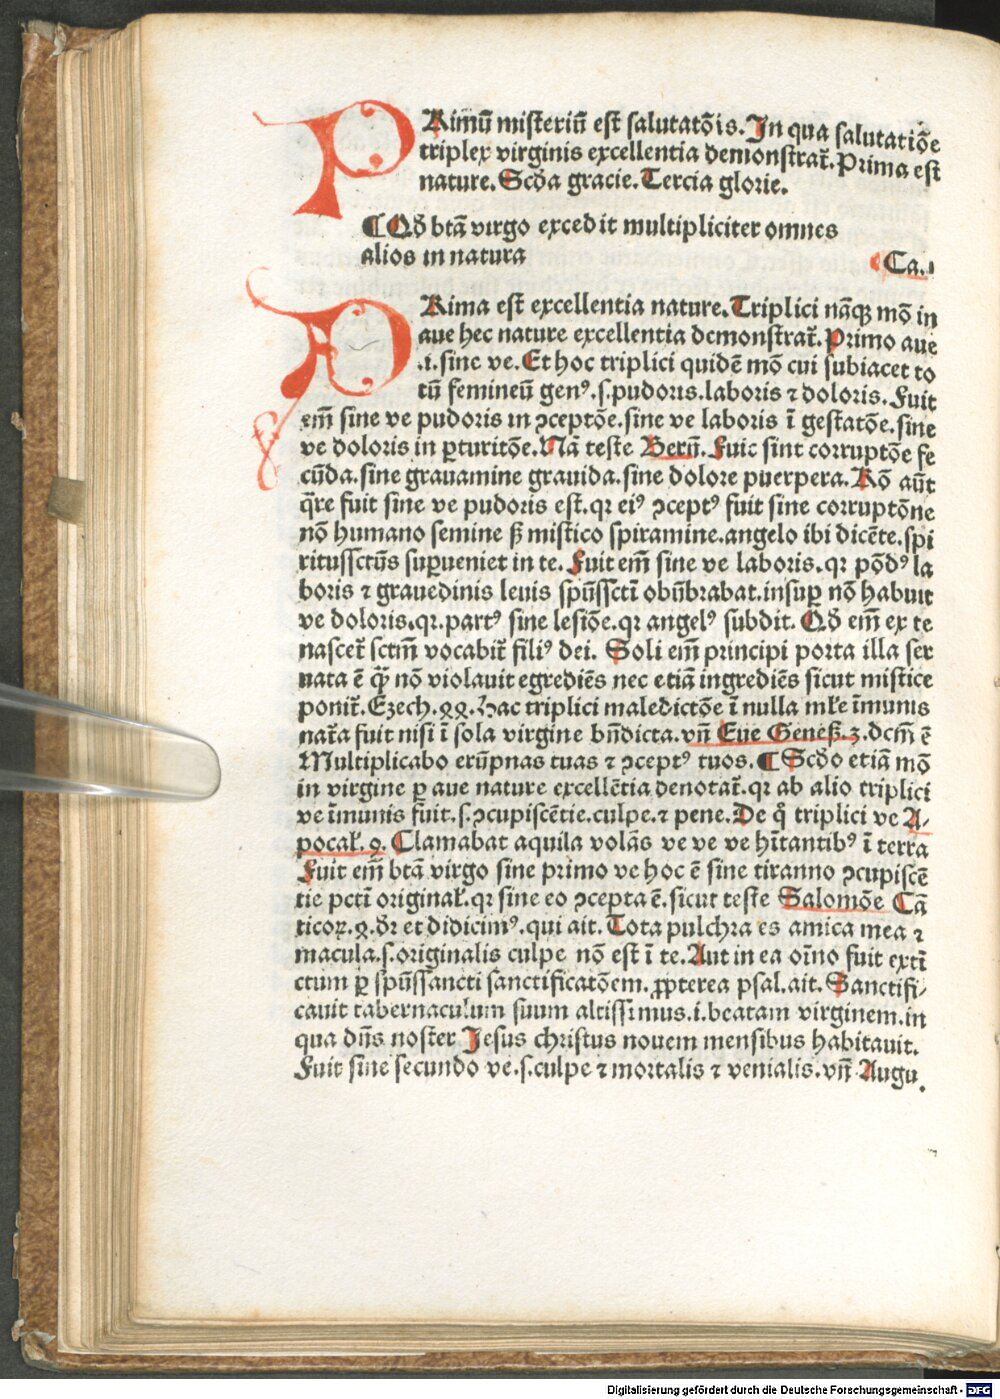 PRimū misteriū est salutatōis. In qua salutatiōe
triplex virginis excellentia demonstrat̄. Prima est
nature. Scďa gracie. Tercia glorie.
¶ Qď btā virgo excedit multipliciter omnes
alios in natura ¶ Ca. i
PRima est excellentia nature. Triplici nāqȝ mō in
aue hec nature excellentia demonstrat̄. Primo aue
.i. sine ve. Et hoc triplici quidē mō cui subiacet to
tū femineū genꝰ .s. pudoris. laboris ⁊ doloris. Fuit
em̄ sine ve pudoris in ꝯceptōe. sine ve laboris ī gestatōe. sine
ve doloris in ꝑturitōe. Nā teste Bern̄. Fuit sine corruptōe fe
cūda. sine grauamine grauida. sine dolore puerpera. Rō aūt
q̄re fuit sine ve pudoris est. qr eiꝰ ꝯceptꝰ fuit sine corruptōne
nō humano semine ß mistico spiramine. angelo ibi dicēte. spi
ritussctūs suꝑueniet in te. Fuit em̄ sine ve laboris. qr pōdꝰ la
boris ⁊ grauedinis leuis spūssctī obūbrabat. insuꝑ nō habuit
ve doloris. qr. partꝰ sine lesiōe. qr angelꝰ subdit. Qď em̄ ex te
nascet̄ sctm̄ vocabit̄ filiꝰ dei. Soli em̄ principi porta illa ser
uata ē q̄ nō violauit egrediēs nec etiā ingrediēs sicut mistice
ponit̄. Ezech. 99. Hac triplici maledictōe ī nulla mƚre īmunis
nat̄a fuit nisi ī sola virgine bn̄dicta. vn̄ Eue Geneß. 3. dcm̄ ē
Multiplicabo erūpnas tuas ⁊ ꝯceptꝰ tuos. ¶ Scďo etiā mō
in virgine ꝑ aue nature excellētia denotat̄. qr ab alio triplici
ve īmunis fuit .s. ꝯcupiscētie. culpe. ⁊ pene. De q̊ triplici ve A-
pocaƚ. 9. Clamabat aquila volās ve ve ve hītantibꝰ ī terra
Fuit em̄ btā virgo sine primo ve hoc ē sine tiranno ꝯcupiscē
tie pctī originaƚ. qr sine eo ꝯcepta ē. sicut teste Salomōe Cā
ticoꝝ. 9. dr̄ et didicimꝰ. qui ait. Tota pulchra es amica mea ⁊
macula .s. originalis culpe nō est ī te. Aut in ea oīno fuit extī
ctum ꝑ spūssancti sanctificatōem. ꝓpterea psal. ait. Sanctifi-
cauit tabernaculum suum altissimus .i. beatam virginem. in
qua dn̄s noster Jesus christus nouem mensibus habitauit.
Fuit sine secundo ve .s. culpe ⁊ mortalis ⁊ venialis. vn̄ Augu.
Digitalisierung gefördert durch die Deutsche Forschungsgemeinschaft - DFG